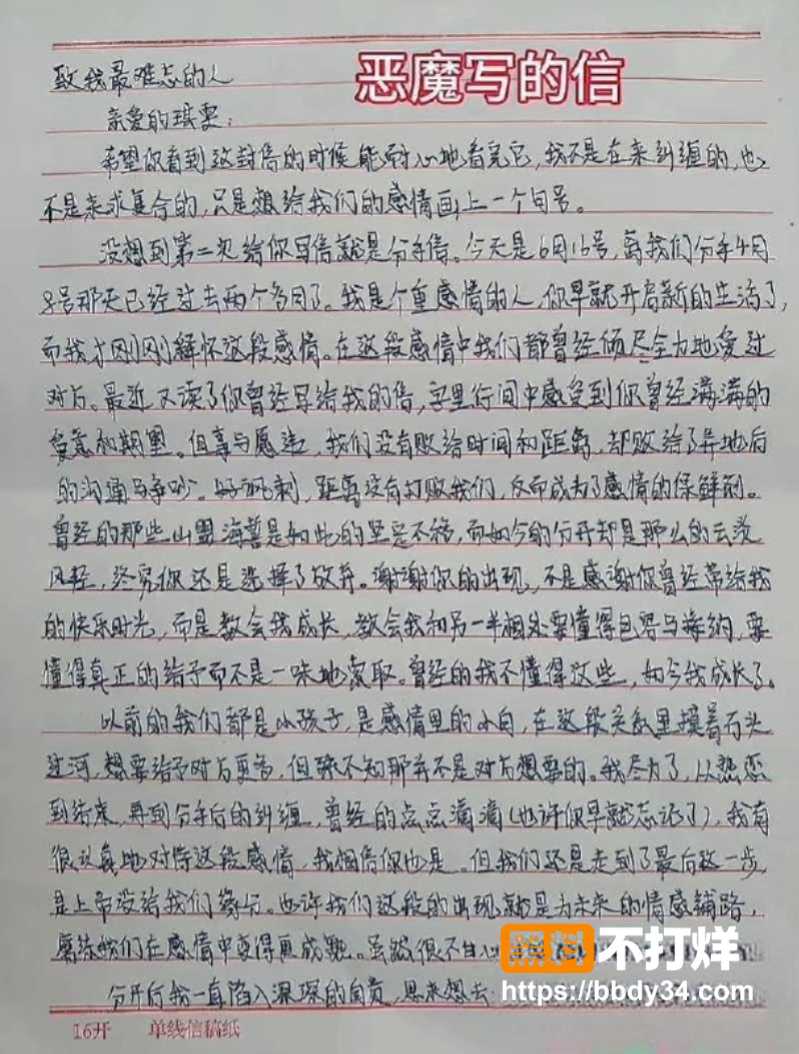 恶魔写的信
致我最难忘的人
亲爱的琪雯：
希望你看到这封信的时候能耐心地看完它，我不是在来纠缠的，也
不是来求复合的，只是想给我们的感情画上一个句号。
没想到第二次给你写信就是分手信。今天是6月16号，离我们分手4月
8号那天已经过去两个多月了。我是个重感情的人，你早就开启新的生活了，
而我才刚刚释怀这段感情。在这段感情中我们都曾经倾尽全力地爱过
对方。最近又读了你曾经写给我的信，字里行间中感受到你曾经满满的
爱意和期望。但事与愿违，我们没有败给时间和距离，却败给了异地后
的沟通与争吵。好讽刺，距离没有打败我们，反而成为了感情的保鲜剂。
曾经的那些山盟海誓是如此的坚定不移，而如今的分开却是那么的云淡
风轻，终究你还是选择了放弃。谢谢你的出现，不是感谢你曾经带给我
的快乐时光，而是教会我成长，教会我和另一半相处要懂得包容与接纳，要
懂得真正的给予而不是一味地索取。曾经的我不懂得这些，如今我成长了。
以前的我们都是小孩子，是感情里的小白，在这段关系里摸着石头
过河，想要给予对方更多，但殊不知那并不是对方想要的。我尽力了，从热恋
到结束，再到分手后的纠缠，曾经的点点滴滴（也许你早就忘记了），我有
很认真地对待这段感情，我相信你也是。但我们还是走到了最后这一步，
是上帝没给我们缘分。也许我们这段的出现就是为未来的情感铺路，
磨练我们在感情中变得更成熟。虽然很不甘心
分开后我一直陷入深深的自责，思来想去
黑料不打烊
https://bbdy34.com
16开 单线信稿纸